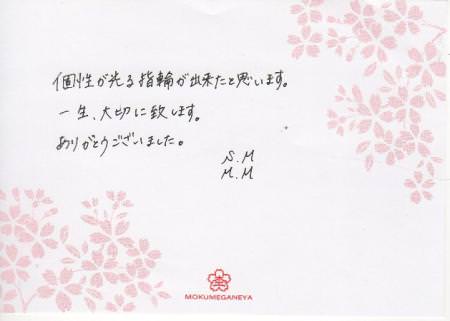 個性が光る指輪が出来たと思います。
一生、大切に致します。
ありがとうございました。
S.M
M.M
MOKUMEGANEYA